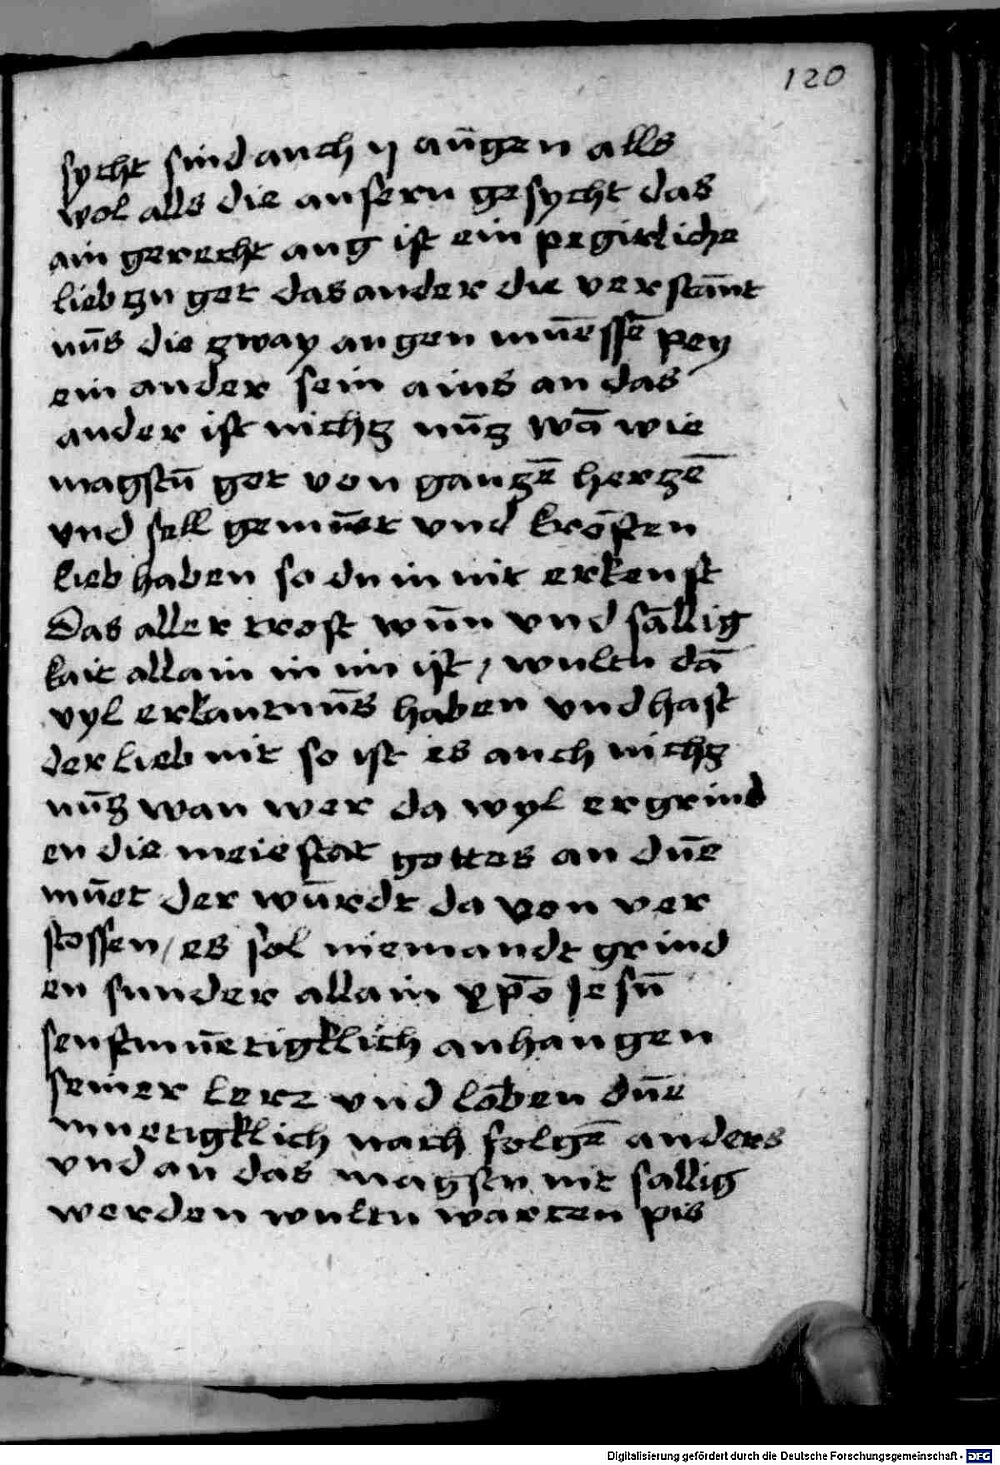 120
sycht sind auch ij aūgen alls
wol alls die ausern gesycht das
ain gerecht aug ist ein pegirliche
lieb zu got das ander die verstāmt
nūs die zway augen mūessē pey
ein ander sein ains an das
ander ist nichz nūz wā wie
magstū got von ganzē herzē
vnd sell gemūet vnd kröften
lieb haben so du in nit erkenst
Das aller trost wūn vnd sällig
kait allain in im ist / wultu dā
vyl erkantnūs haben vnd hast
der lieb nit so ist es auch nichz
nūz wan wer da wyl ergrind
en die meiestat gottes an dūe
mūet der wūrdt da von ver
stossen / es sol niemandt grind
en sunder allain xp̄o Jesū
senftmūetigklich anhangen
seiner lerz vnd löben dūe
muetigklich nach folgē anders
vnd an das magstu nit sallig
werden wultu warten pis
Digitalisierung gefördert durch die Deutsche Forschungsgemeinschaft - DFG